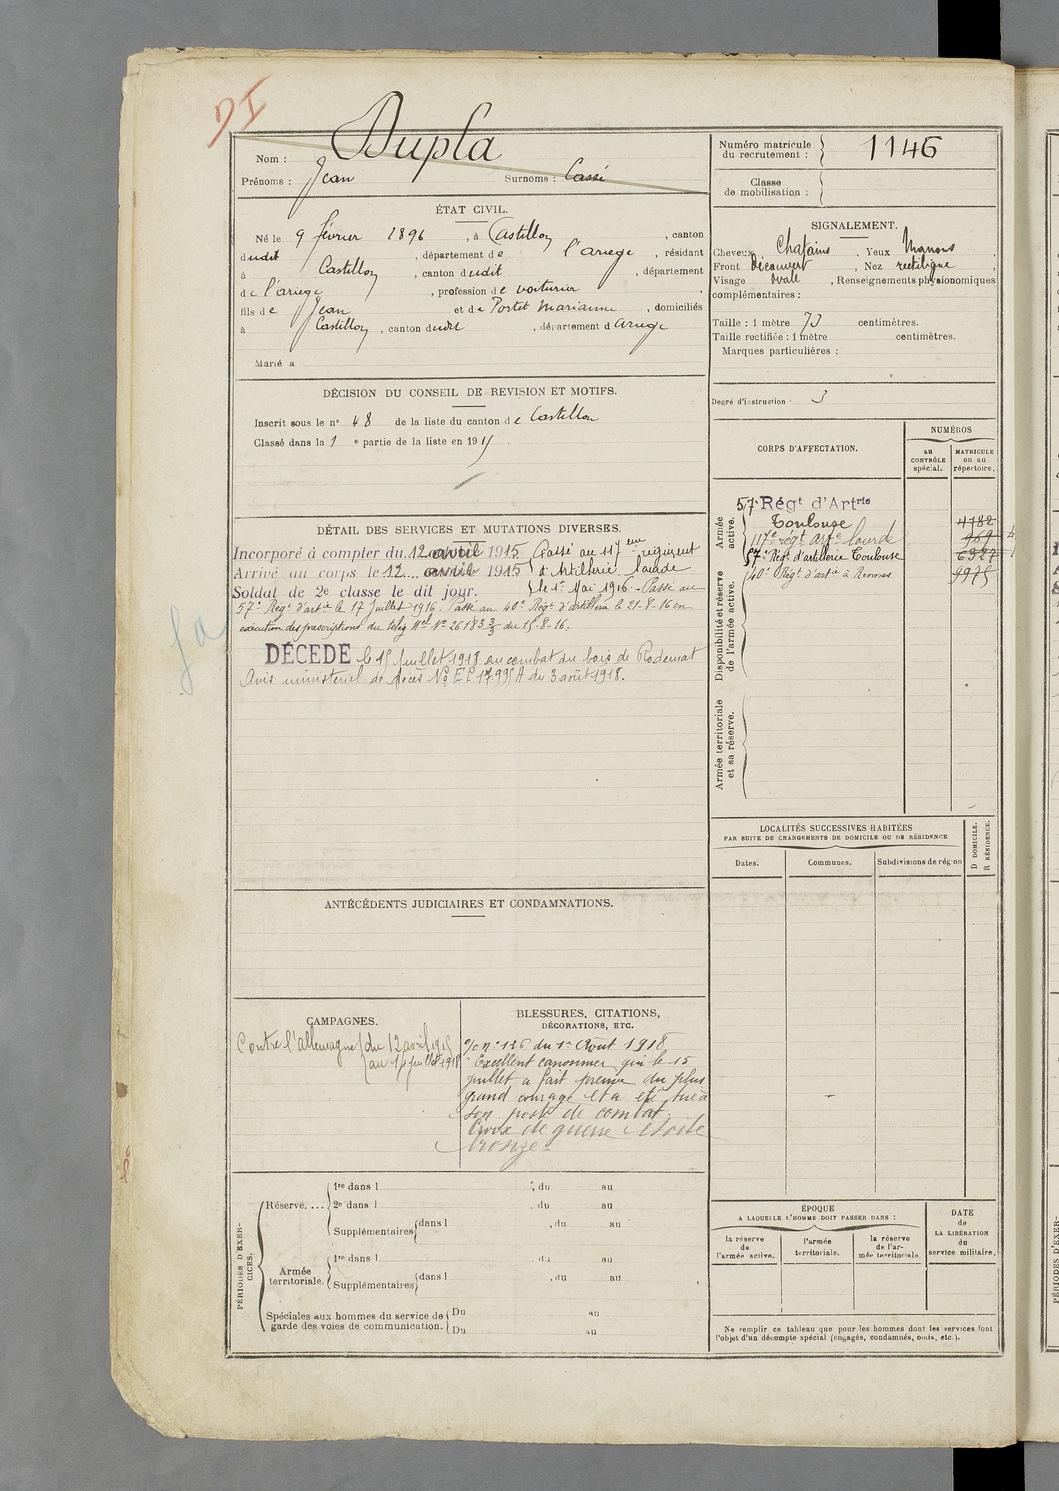 Dupla
Nom :
Prénoms : Jean Surnoms : Cassé
ÉTAT CIVIL.
Né le 9 février 1896, à Castillon, canton
dudit, département de l'ariege, résidant
à Castillon, canton dudit, département
de l'ariege, profession de voiturier
fils de Jean et de Portet Marianne, domiciliés
à Castillon, canton dudit, département d Ariege
Marié à
DÉCISION DU CONSEIL DE REVISION ET MOTIFS.
Inscrit sous le nº 48 de la liste du canton de Castillon
Classé dans la 1 e partie de la liste en 1915.
DÉTAIL DES SERVICES ET MUTATIONS DIVERSES.
Incorporé à compter du 12 avril 1915 Passé au 117eme régiment
Arrivé au corps le 12 avril 1915 d'Artillerie lourde
Soldat de 2e classe le dit jour. le 1er Mai 1916 - Passé au
57e Régt d'artie le 17 Juillet 1916. Passé au 40e Régt d'artillerie le 21-8-16 en
exécution des prescriptions du télég Mel Nº 26183 3/3 du 15-8-16.
DÉCÉDÉ le 15 Juillet 1918 au combat du bois de Rodemat
Avis ministeriel de décès Nº EC 17.995 A du 3 août 1918.
ANTÉCÉDENTS JUDICIAIRES ET CONDAMNATIONS.
CAMPAGNES.
Contre l'allemagne du 12 avril 1915
au 15 juillet 1918
BLESSURES, CITATIONS,
DÉCORATIONS, ETC.
o/c nº 126 du 1er Août 1918
Excellent canonnier qui le 15
juillet a fait preuve du plus
grand courage et a été tué à
son poste de combat.
Croix de guerre étoile
bronze
PÉRIODES D'EXERCICES.
Réserve.... 1re dans l , du au
2e dans l , du au
Supplémentaires dans l , du au
Armée territoriale. 1re dans l , du au
Supplémentaires dans l , du au
Spéciales aux hommes du service de garde des voies de communication. Du au
Du au
Numéro matricule du recrutement : 1146
Classe de mobilisation :
SIGNALEMENT.
Cheveux Chatains, Yeux Marrons,
Front découvert, Nez rectiligne,
Visage ovale, Renseignements physionomiques
complémentaires :
Taille : 1 mètre 73 centimètres.
Taille rectifiée : 1 mètre centimètres.
Marques particulières :
Degré d'instruction : 3
CORPS D'AFFECTATION.
NUMÉROS
au CONTRÔLE spécial.
MATRICULE ou au répertoire.
Armée active.
57e Régt d'Artrie
Toulouse 4782
117e régt arte lourde 969
57e Régt d'artillerie Toulouse 6327
40e Régt d'artie à Rennes 9975
Disponibilité et réserve de l'armée active.
Armée territoriale et sa réserve.
LOCALITÉS SUCCESSIVES HABITÉES
PAR SUITE DE CHANGEMENTS DE DOMICILE OU DE RÉSIDENCE
D DOMICILE.
R RÉSIDENCE.
Dates. Communes. Subdivisions de région
ÉPOQUE
A LAQUELLE L'HOMME DOIT PASSER DANS :
la réserve de l'armée active.
l'armée territoriale.
la réserve de l'armée territoriale.
DATE de LA LIBÉRATION du service militaire.
Ne remplir ce tableau que pour les hommes dont les services font
l'objet d'un décompte spécial (engagés, condamnés, omis, etc.).